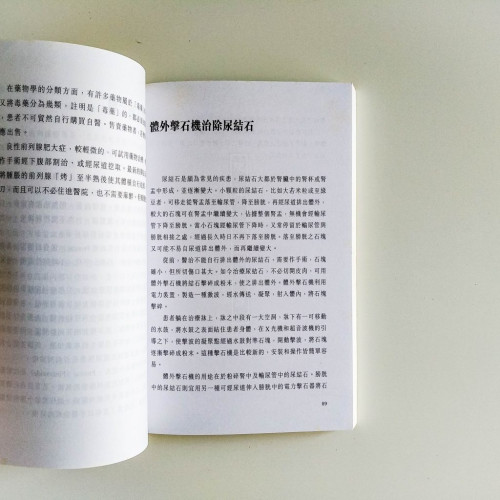 在藥物學的分類方面,有許多藥物屬於「毒
又將毒藥分為幾類,註明是「毒藥」的,
,患者不可貿然自行購買自醫。售賣藥物者,
應出售。
良性前列腺肥大症,較輕微的,可試用藥物
作手術經下腹部割治,或經尿道挖取,最新的
將腫脹的前列腺「烤」至半熟後使其體積
刀,而且可以不必住進醫院,也不需要麻醉,
體外擊石機治除尿結石
尿結石是頗為常見的疾患,尿結石大都於腎臟中的腎杯或腎
盂中形成,並逐漸變大。小顆粒的尿結石,比如大若米粒或至綠
豆者,可移走從腎盂落至輸尿管,降至膀胱,再經尿道排出體外,
較大的石塊可在腎盂中繼續變大,佔據整個腎盂,無機會經輸尿
管下降至膀胱。當小石塊經輸尿管下降時,又常停留於輸尿管與
膀胱相接之處,經過長久時日不再下落至膀胱。落至膀胱之石塊
又可能不易自尿道排出體外,而再繼續變大。
從前,醫治不能自行排出體外的尿結石,需要作手術,石塊
雖小,但所切傷口甚大。如今治療尿結石,不必切開皮肉,可用
體外擊石機將結石擊碎或粉末,使之排出體外。體外擊石機利用
電力裝置,製造一種激波,經水傳送、凝聚、射入體內,將石塊
擊碎。
患者躺在治療牀上,牀之中段有一大空洞,牀下有一可移動
的水鼓,將水鼓之表面貼住患者身體,在X光機和超音波機的引
導之下,使擊波的凝聚點經過水鼓對準石塊,開動擊波,將石塊
逐漸擊碎成粉末。這種擊石機是比較新的,安裝和操作皆簡單容
易。
體外擊石機的用途在於粉碎腎中及輸尿管中的尿結石。膀胱
中的尿結石則宜用另一種可經尿道伸入膀胱中的電力擊石器將石
89